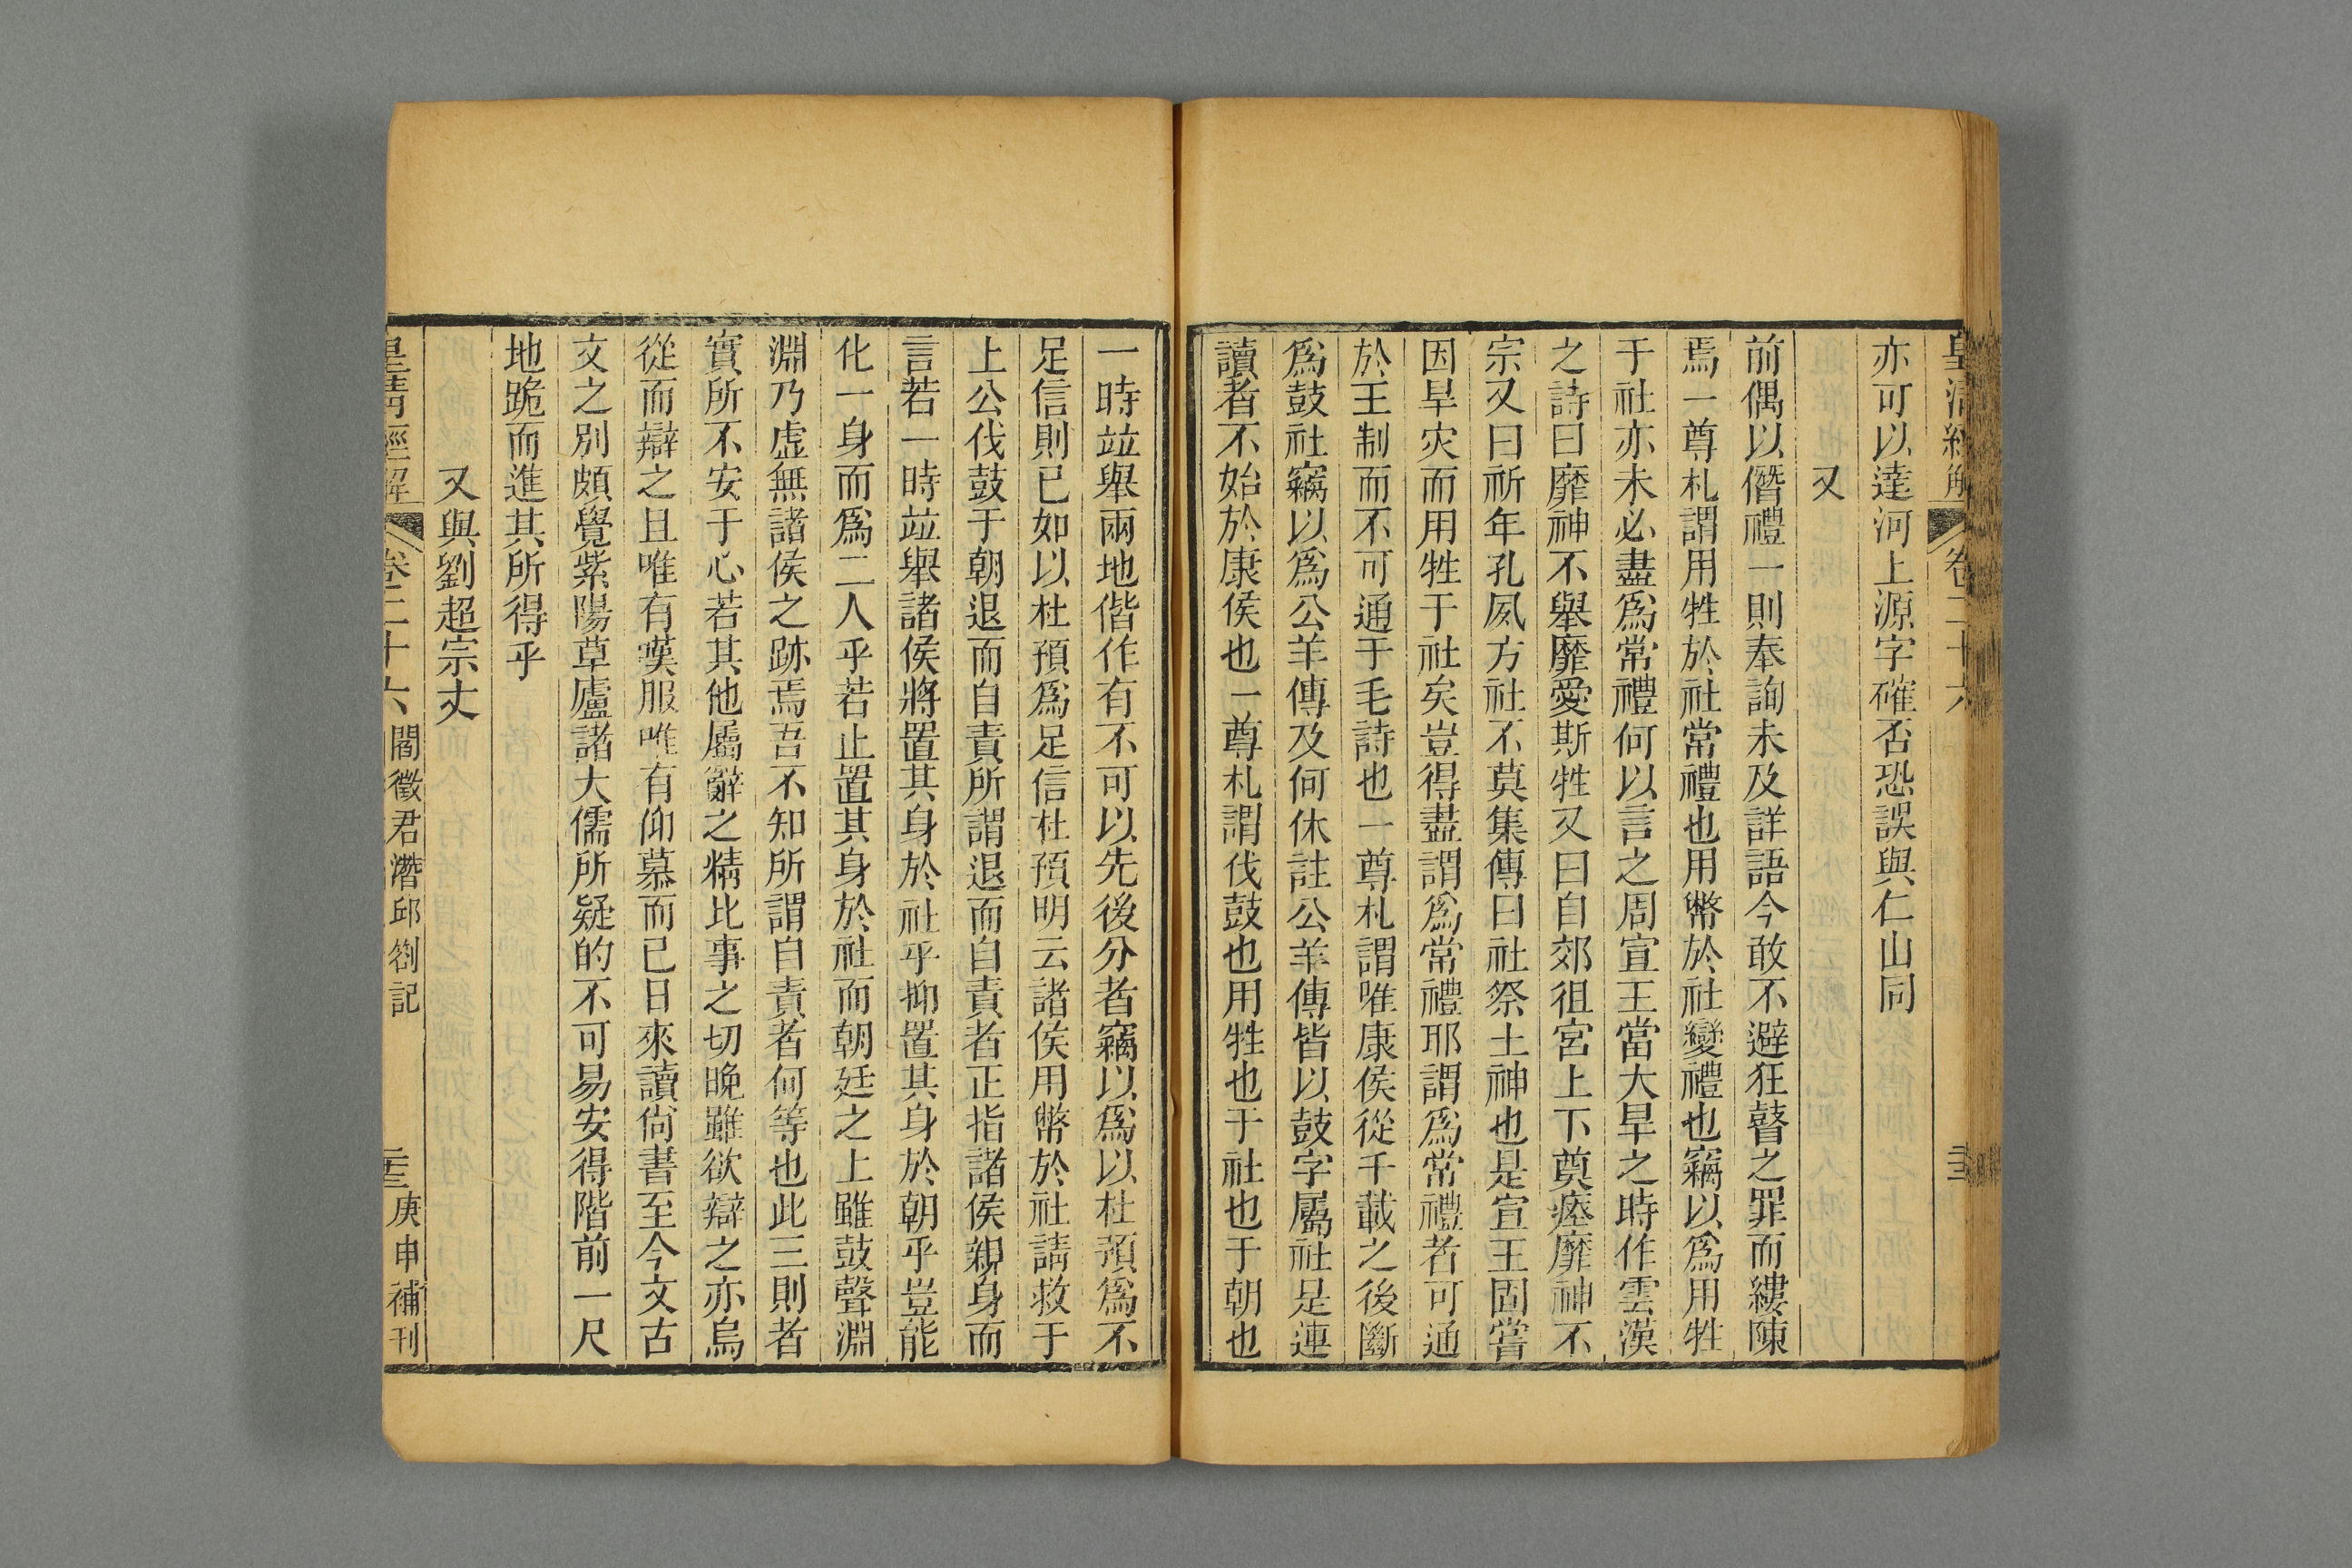 皇清經解 卷二十六 三
亦可以達河上源字確否恐誤與仁山同
又
前偶以僭禮一則奉詢未及詳語今敢不避狂瞽之罪而縷陳
焉一尊札謂用牲於社常禮也用幣於社變禮也竊以為用牲
于社亦未必盡為常禮何以言之周宣王當大旱之時作雲漢
之詩曰靡神不舉靡愛斯牲又曰自郊徂宮上下奠瘞靡神不
宗又曰祈年孔夙方社不莫集傳曰社祭土神也是宣王固嘗
因旱灾而用牲于社矣豈得盡謂為常禮耶謂為常禮者可通
於王制而不可通于毛詩也一尊札謂唯康侯從千載之後斷
為鼓社竊以為公羊傳及何休註公羊傳皆以鼓字屬社足連
讀者不始於康侯也一尊札謂伐鼓也用牲也于社也于朝也
一時竝舉兩地偕作有不可以先後分者竊以為以杜預為不
足信則已如以杜預為足信杜預明云諸侯用幣於社請救于
上公伐鼓于朝退而自責所謂退而自責者正指諸侯親身而
言若一時竝舉諸侯將置其身於社乎抑置其身於朝乎豈能
化一身而為二人乎若止置其身於社而朝廷之上雖鼓聲淵
淵乃虛無諸侯之跡焉吾不知所謂自責者何等也此三則者
實所不安于心若其他屬辭之精比事之切晚雖欲辯之亦烏
從而辯之且唯有嘆服唯有仰慕而已日來讀尙書至今文古
文之別頗覺紫陽草廬諸大儒所疑的不可易安得階前一尺
地跪而進其所得乎
又與劉超宗丈
皇清經解 卷二十六 閻徵君潛邱劄記 三 庚申補刊